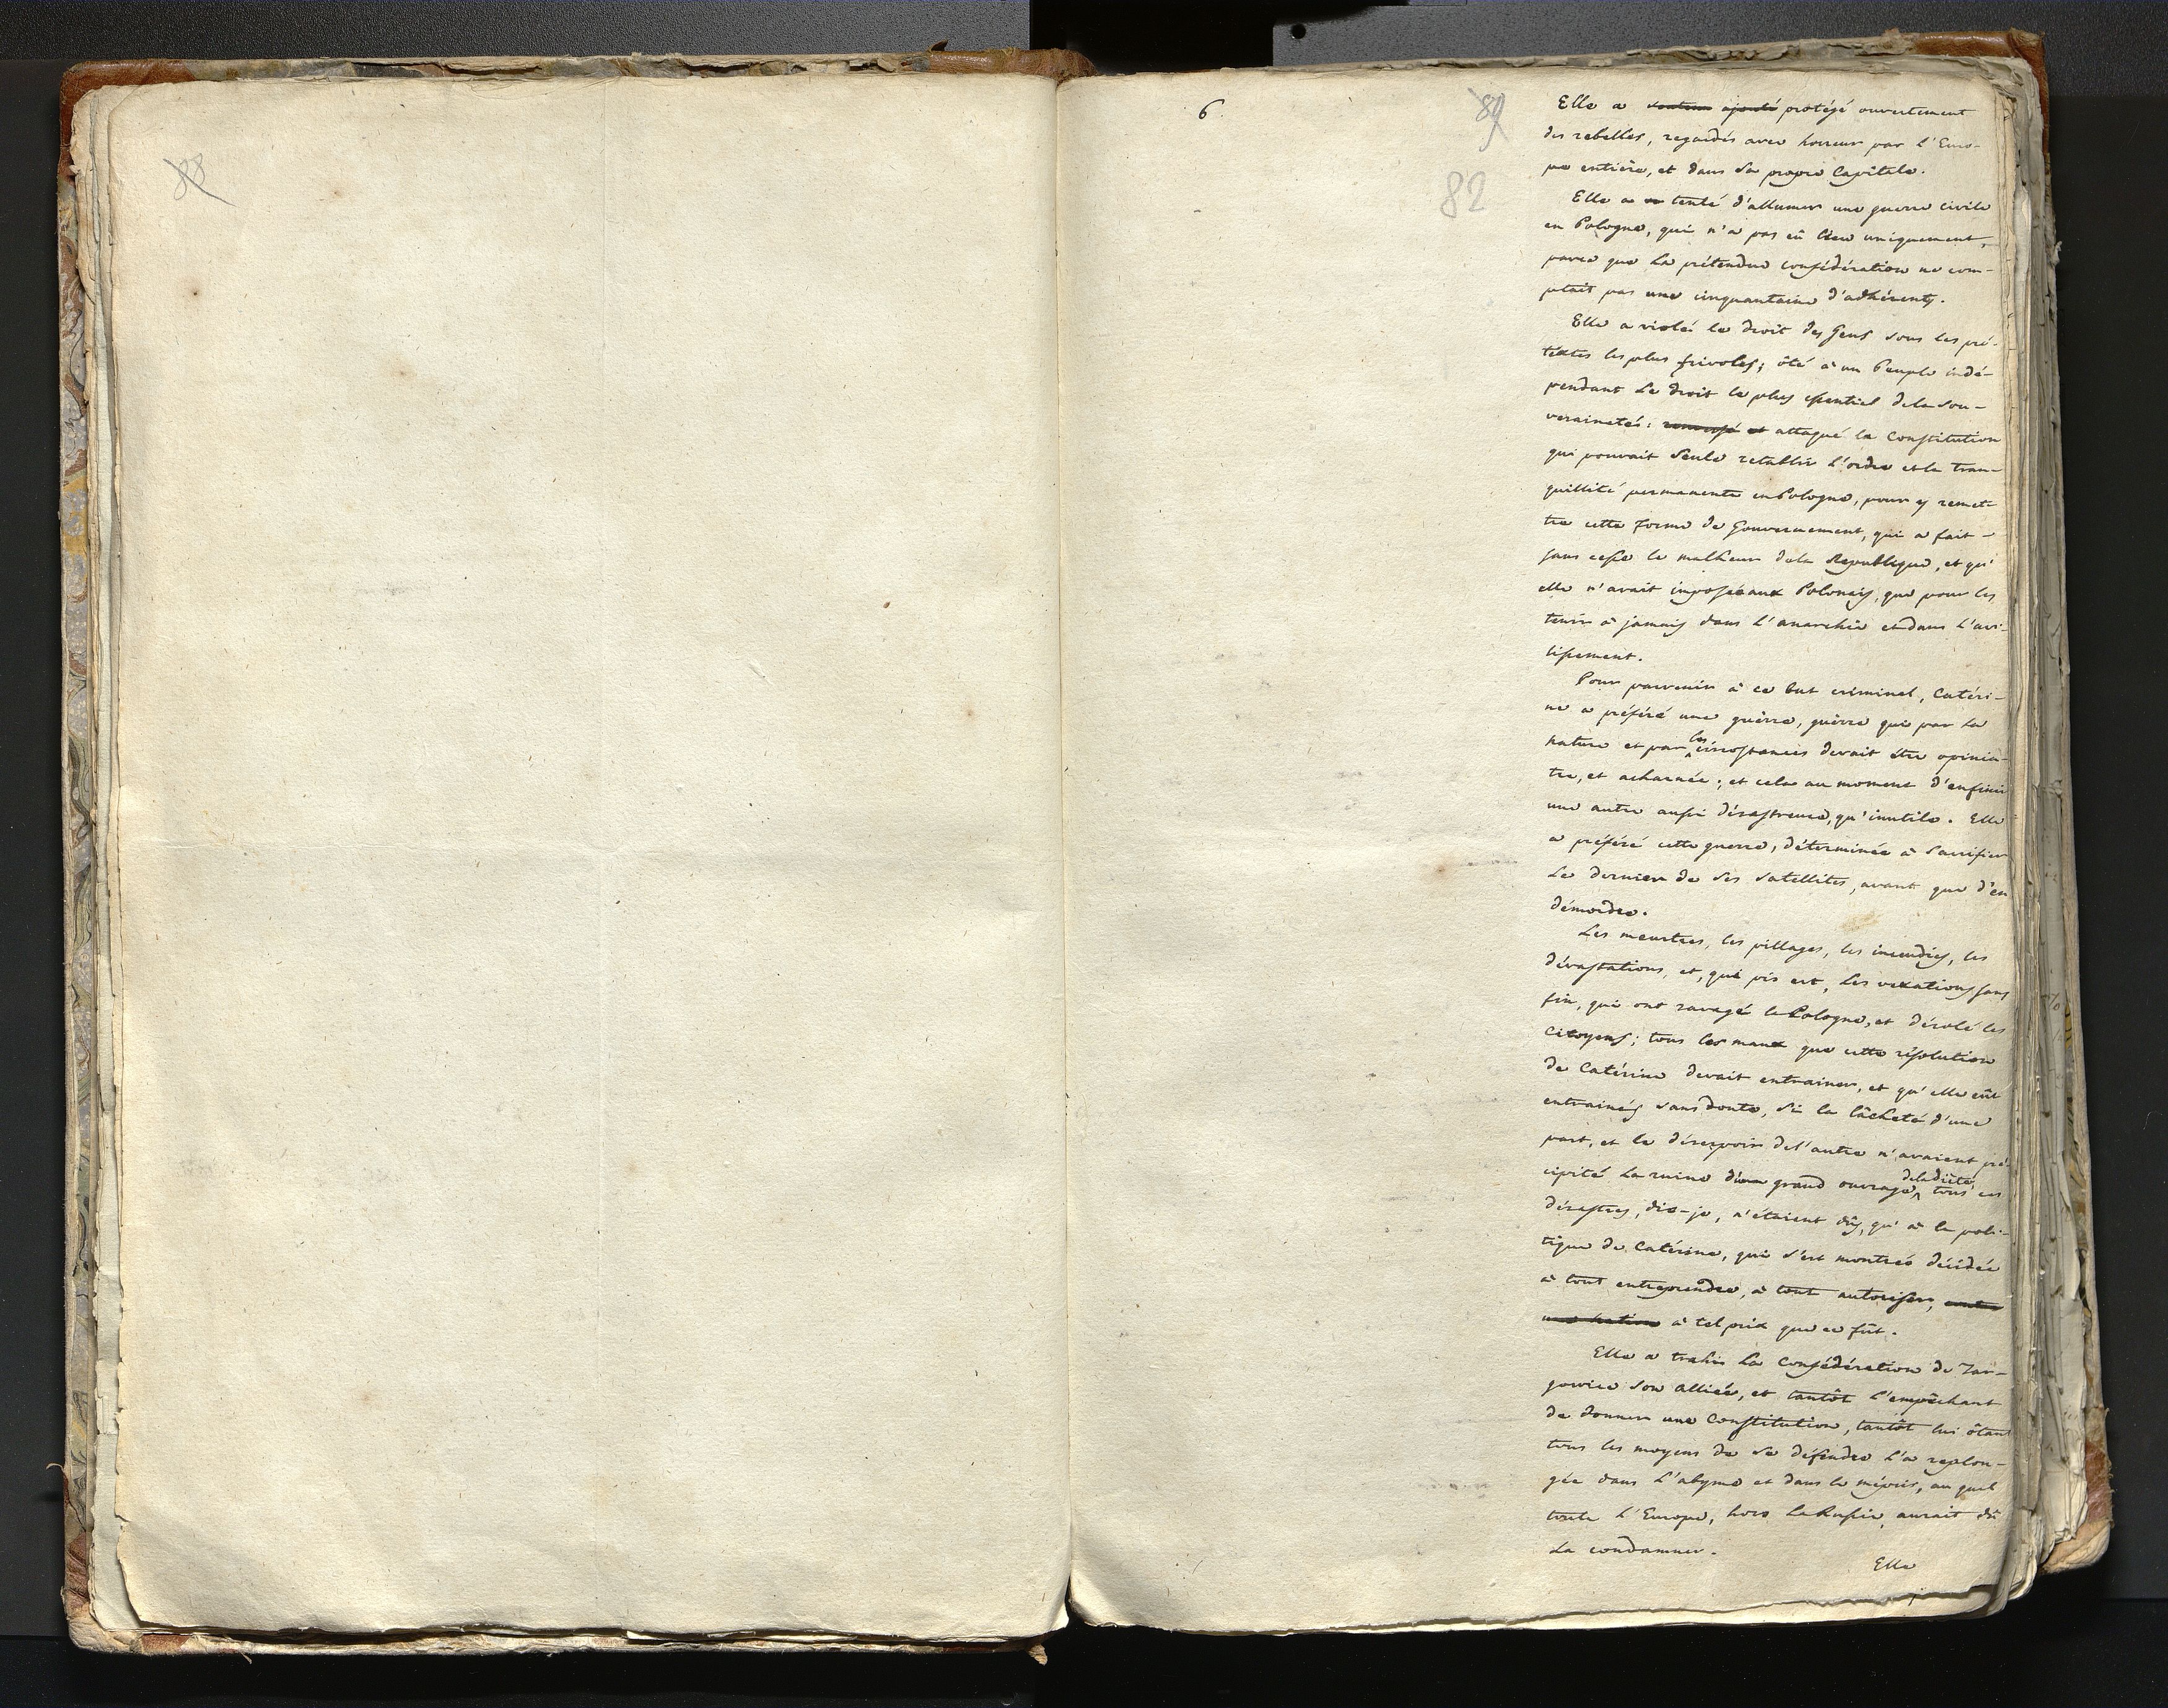 88
6.
89
82
Elle a soutenu ajouté protégé ouvertement
des rebelles, regardés avec horreur par l'Euro-
pe entière, et dans sa propre Capitale.
Elle a tenté d'allumer une guerre civile
en Pologne, qui n'a pas eû lieu uniquement,
parce que la prétendue confédération ne com-
ptait pas une cinquantaine d'adhérents.
Elle a violé le droit des Gens sous les pré-
textes les plus frivoles; ôté à un Peuple indé-
pendant le droit le plus essentiel dela sou-
veraineté: renversé et attaqué la Constitution
qui pouvait seule retablir l'ordre et la tran-
quillité permanente en Pologne, pour y remet-
tre cette forme de Gouvernement, qui a fait
sans cesse le malheur dela Republique, et qu'
elle n'avait imposée aux Polonais, que pour les
tenir à jamais dans l'anarchie et dans l'avi-
lissement.
Pour parvenir à ce but criminel, Catéri-
ne a préféré une guèrre, guèrre qui par sa
nature et par les circonstances devait être opiniâ-
tre, et acharnée; et cela au moment d'en finir
une autre aussi désastreuse, qu'inutile. Elle
a préféré cette guerre, déterminée à sacrifier
le dernier de ses satellites, avant que d'en
démordre.
Les meurtres, les pillages, les incendies, les
dévastations, et, qui pis est, les vexations sans
fin, qui ont ravagé la Pologne, et désolé les
Citoyens; tous les maux que cette résolution
de Catérine devait entrainer, et qu'elle eût
entrainés sans doute, si la lâcheté d'une
part, et le désespoir del'autre n'avaient pré-
cipité la ruine du grand ouvrage dela diète, tous ces
désastres, dis-je, n'étaient dûs, qu'à la poli-
tique de Catérine, qui s'est montrée décidée
à tout entreprendre, à tout autoriser, contre
une nation à tel prix que ce fût.
Elle a trahi la Confédération de Tar-
gowice son alliée, et tantôt l'empêchant
de donner une Constitution, tantôt lui ôtant
tous les moyens de se défendre l'a replon-
gée dans l'abyme et dans le mépris, au quel
toute l'Europe, hors la Russie, aurait dû
la condamner.
Elle